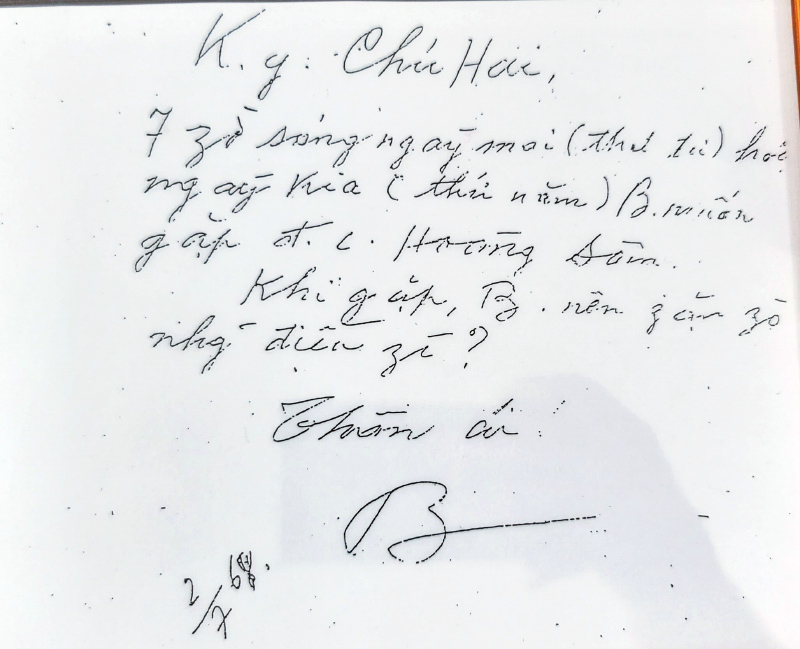 K. g: Chú Hai,
7 zờ sáng ngày mai (thứ tư) hoặ
ngày kia (thứ năm) B. muốn
gặp đ. c. Hoàng Sâm.
Khi gặp, B. nên zặn zò
nhg~ điều zì?
Thân ái!
B
2/7 68.